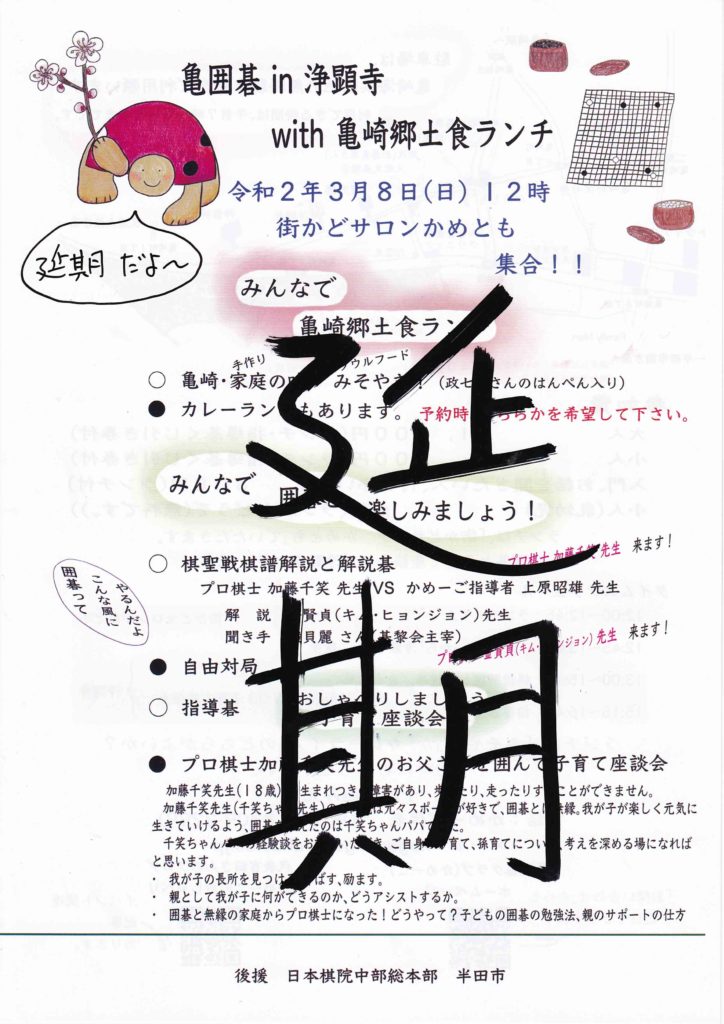 亀囲碁 in 浄顕寺
with 亀崎郷土食ランチ
令和2年3月8日(日) 12時
街かどサロンかめとも
集合!!
延期 だよ～
みんなで
亀崎郷土食ラン
延期
手作り
ウルフード
○ 亀崎・家庭の みそやき! (政七 さんのはんぺん入り)
● カレーラン もあります。 予約時 ちらかを希望して下さい。
みんなで 囲碁 楽しみましょう!
プロ棋士 加藤千笑 先生 来ます!
○ 棋聖戦棋譜解説と解説碁
プロ棋士 加藤千笑 先生 VS かめーご指導者 上原昭雄 先生
囲碁って
こんな風に
やるんだよ
解 説 賢貞(キム・ヒョンジョン)先生
聞き手 貝麗 さん(碁黎会主宰)
プロ 金賢貞(キム・ヒョンジョン) 先生 来ます!
● 自由対局
○ 指導碁
おしゃべりしましょう
子育て座談会
● プロ棋士加藤千笑先生のお父さんを囲んで子育て座談会
加藤千笑先生(18歳) 生まれつき 障害があり、歩 たり、走ったりす ことができません。
加藤千笑先生(千笑ちゃん先生)の は元々スポー が好きで、囲碁とは無縁。我が子が楽しく元気に
生きていけるよう、囲碁を えたのは千笑ちゃんパパでした。
千笑ちゃん の経験談をお いただき、ご自身の子育て、孫育てについて、考えを深める場になれば
と思います。
・ 我が子の長所を見つける、伸ばす、励ます。
・ 親として我が子に何ができるのか、どうアシストするか。
・ 囲碁と無縁の家庭からプロ棋士になった!どうやって?子どもの囲碁の勉強法、親のサポートの仕方
後援 日本棋院中部総本部 半田市